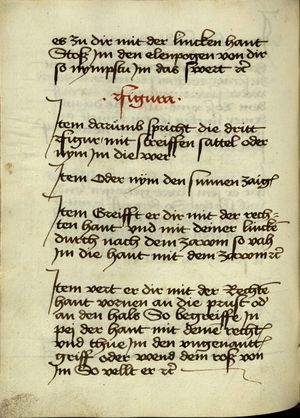 es zu dir mit der lincken hant
Stoß Im den elenpogen von dir
so nympstu Im das swert ꝛc
· Figura ·
Item darumb spricht die dritt
figur mit streiffen sattel oder
nym im die wer
Item Oder nym den sinnen zaigl
Item Greifft er dir mit der rech
ten hant vnd mit deiner lincke
durch nach dem zawm so vah
im die hant mit dem zawm ꝛc
Item vert er dir mit der Rechte
hant vornen an die prust od
an den hals So begreiffe In
pei der hant mit deine recht
vnd thue im den vngenantt
griff oder wend dem roß von
Im So vellt er ꝛc